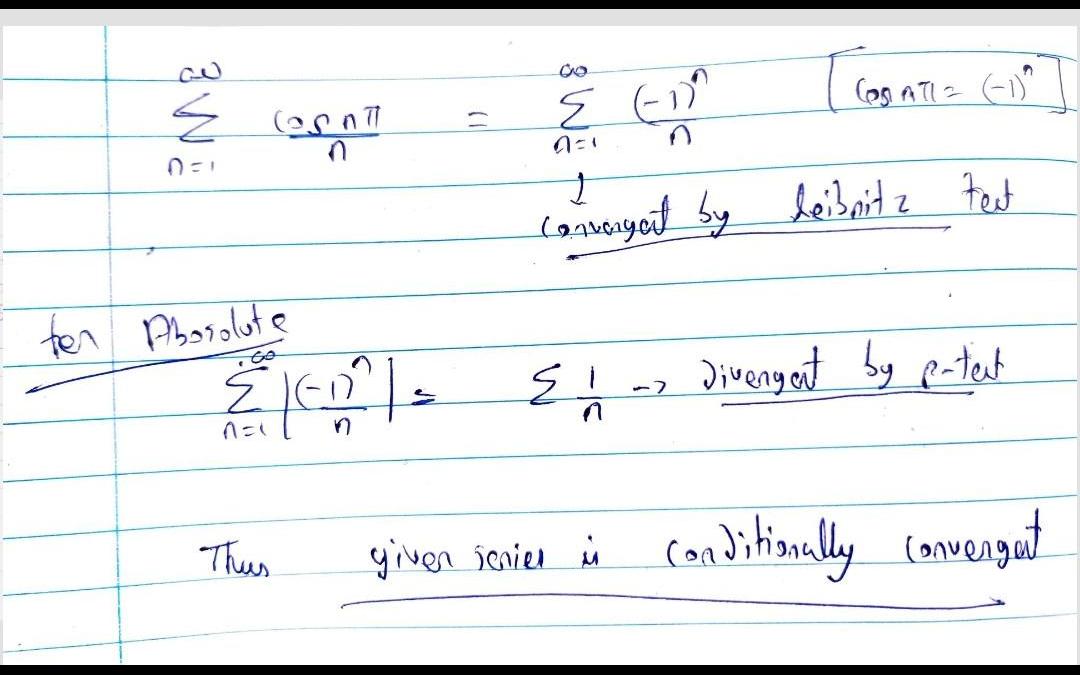 ∞∑n=1 cos nπ/n = ∞∑n=1 (-1)^n/n [cos nπ = (-1)^n]
↓
convergent by Leibnitz test
for Absolute
∞∑n=1 |(-1)^n/n| = Σ 1/n → divergent by p-test
Thus given series is conditionally convergent